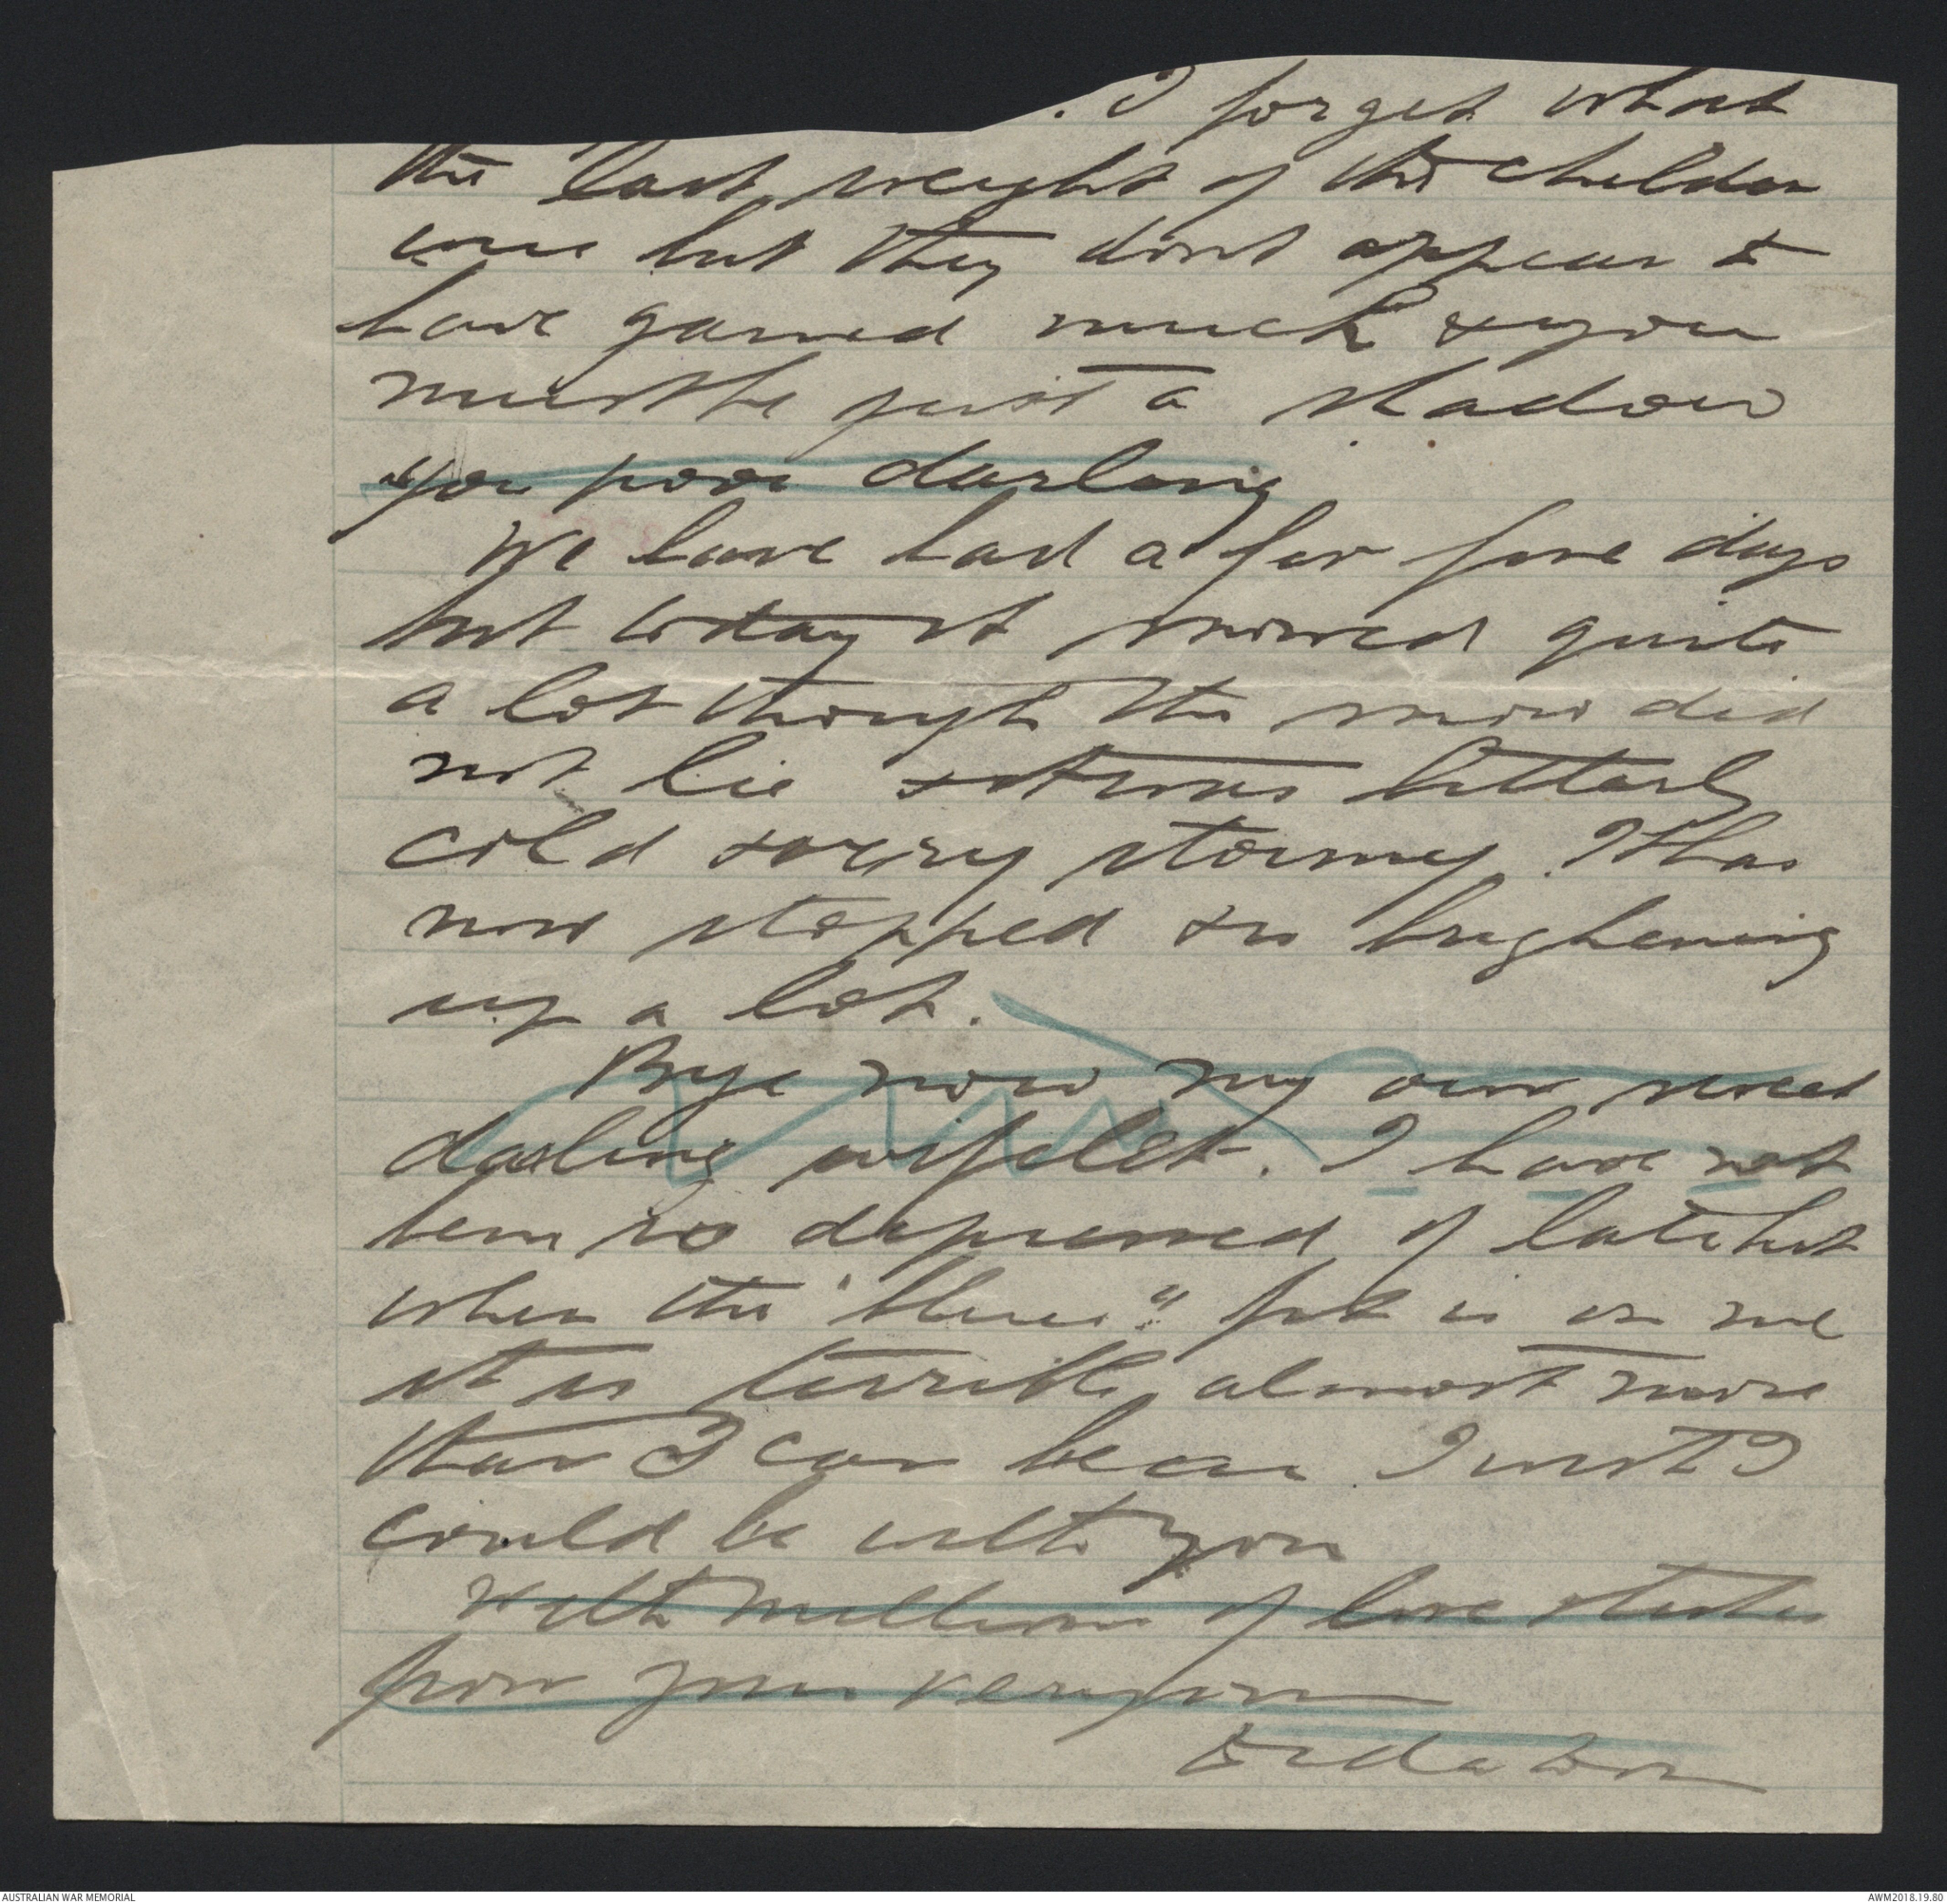 . I forget what
the last weight of the children
were but they don't appear to
have gained much & you
must be just a shadow
you poor darling
We have had a few fine days
but today it snowed quite
a lot though the snow did
not lie & it was bitterly
cold & very stormy. It has
now stopped & is brightening
up a lot.
Bye now my own sweet
darling wifelet. I have not
been so depressed of late but
when the "blues" fit is on me
it is terrible, almost more
than I can bear I wish I
could be with you
With millions of love
from your very own
AUSTRALIAN WAR MEMORIAL
AWM2018.19.80